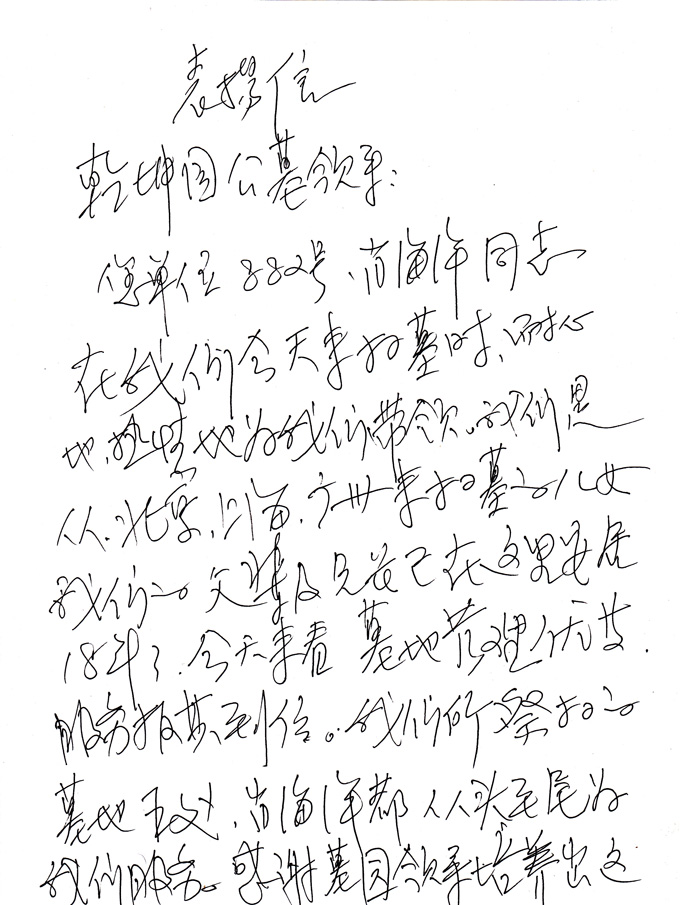 表扬信
乾坤园公墓领导：
您单位882号、肖海洋同志
在我们今天来扫墓时，耐心
地、热情地为我们带领。我们是
从、北京、上海、广州来扫墓的儿女
我们的父辈及兄长已在这里安居
18年了，今天来看 墓地管理优良.
服务极其到位。我们所祭扫的
墓地 肖海洋都从头至尾为
我们服务。感谢墓园领导培养出这